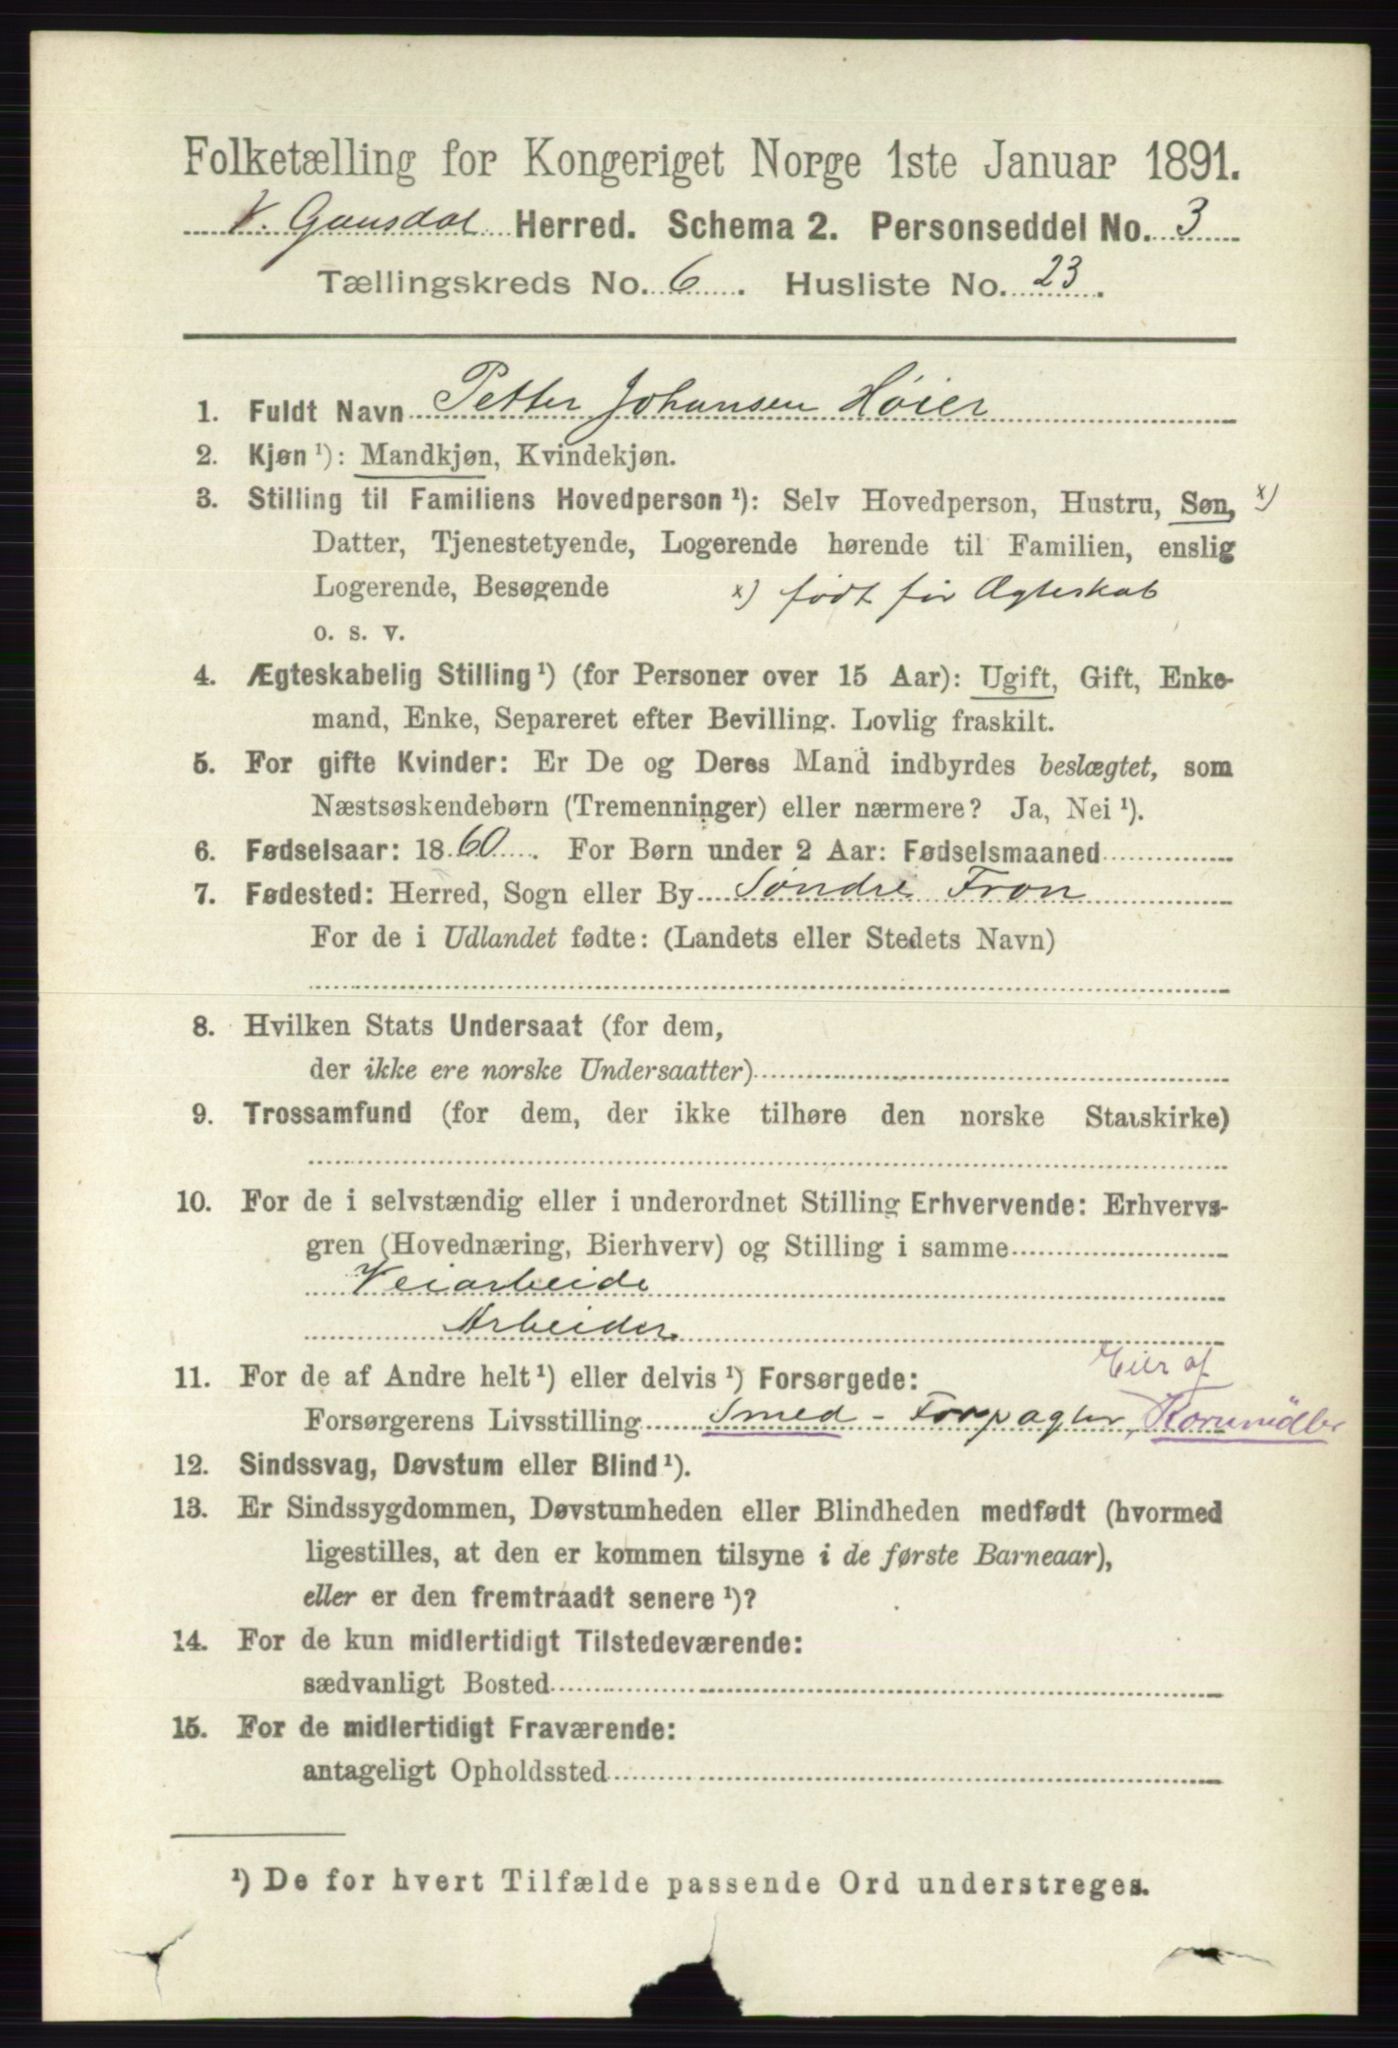 Folketælling for Kongeriget Norge 1ste Januar 1891.
V. Gausdal Herred. Schema 2. Personseddel No. 3
Tællingskreds No. 6. Husliste No. 23.
1. Fuldt Navn Petter Johansen Höier
2. Kjøn ¹): Mandkjøn, Kvindekjøn.
3. Stilling til Familiens Hovedperson ¹): Selv Hovedperson, Hustru, Søn, x)
Datter, Tjenestetyende, Logerende hørende til Familien, enslig
Logerende, Besøgende x) født før Ægteskab
o. s. v.
4. Ægteskabelig Stilling ¹) (for Personer over 15 Aar): Ugift, Gift, Enke-
mand, Enke, Separeret efter Bevilling. Lovlig fraskilt.
5. For gifte Kvinder: Er De og Deres Mand indbyrdes beslægtet, som
Næstsøskendebørn (Tremenninger) eller nærmere? Ja, Nei ¹).
6. Fødselsaar: 1860. For Børn under 2 Aar: Fødselsmaaned
7. Fødested: Herred, Sogn eller By Söndre Fron
For de i Udlandet fødte: (Landets eller Stedets Navn)
8. Hvilken Stats Undersaat (for dem,
der ikke ere norske Undersaatter)
9. Trossamfund (for dem, der ikke tilhøre den norske Statskirke)
10. For de i selvstændig eller i underordnet Stilling Erhvervende: Erhvervs-
gren (Hovednæring, Bierhverv) og Stilling i samme
Veiarbeide
Arbeider
11. For de af Andre helt ¹) eller delvis ¹) Forsørgede: Eier af
Forsørgerens Livsstilling Smed - Forpagter, Kornmölle
12. Sindssvag, Døvstum eller Blind ¹).
13. Er Sindssygdommen, Døvstumheden eller Blindheden medfødt (hvormed
ligestilles, at den er kommen tilsyne i de første Barneaar),
eller er den fremtraadt senere ¹)?
14. For de kun midlertidigt Tilstedeværende:
sædvanligt Bosted
15. For de midlertidigt Fraværende:
antageligt Opholdssted
¹) De for hvert Tilfælde passende Ord understreges.